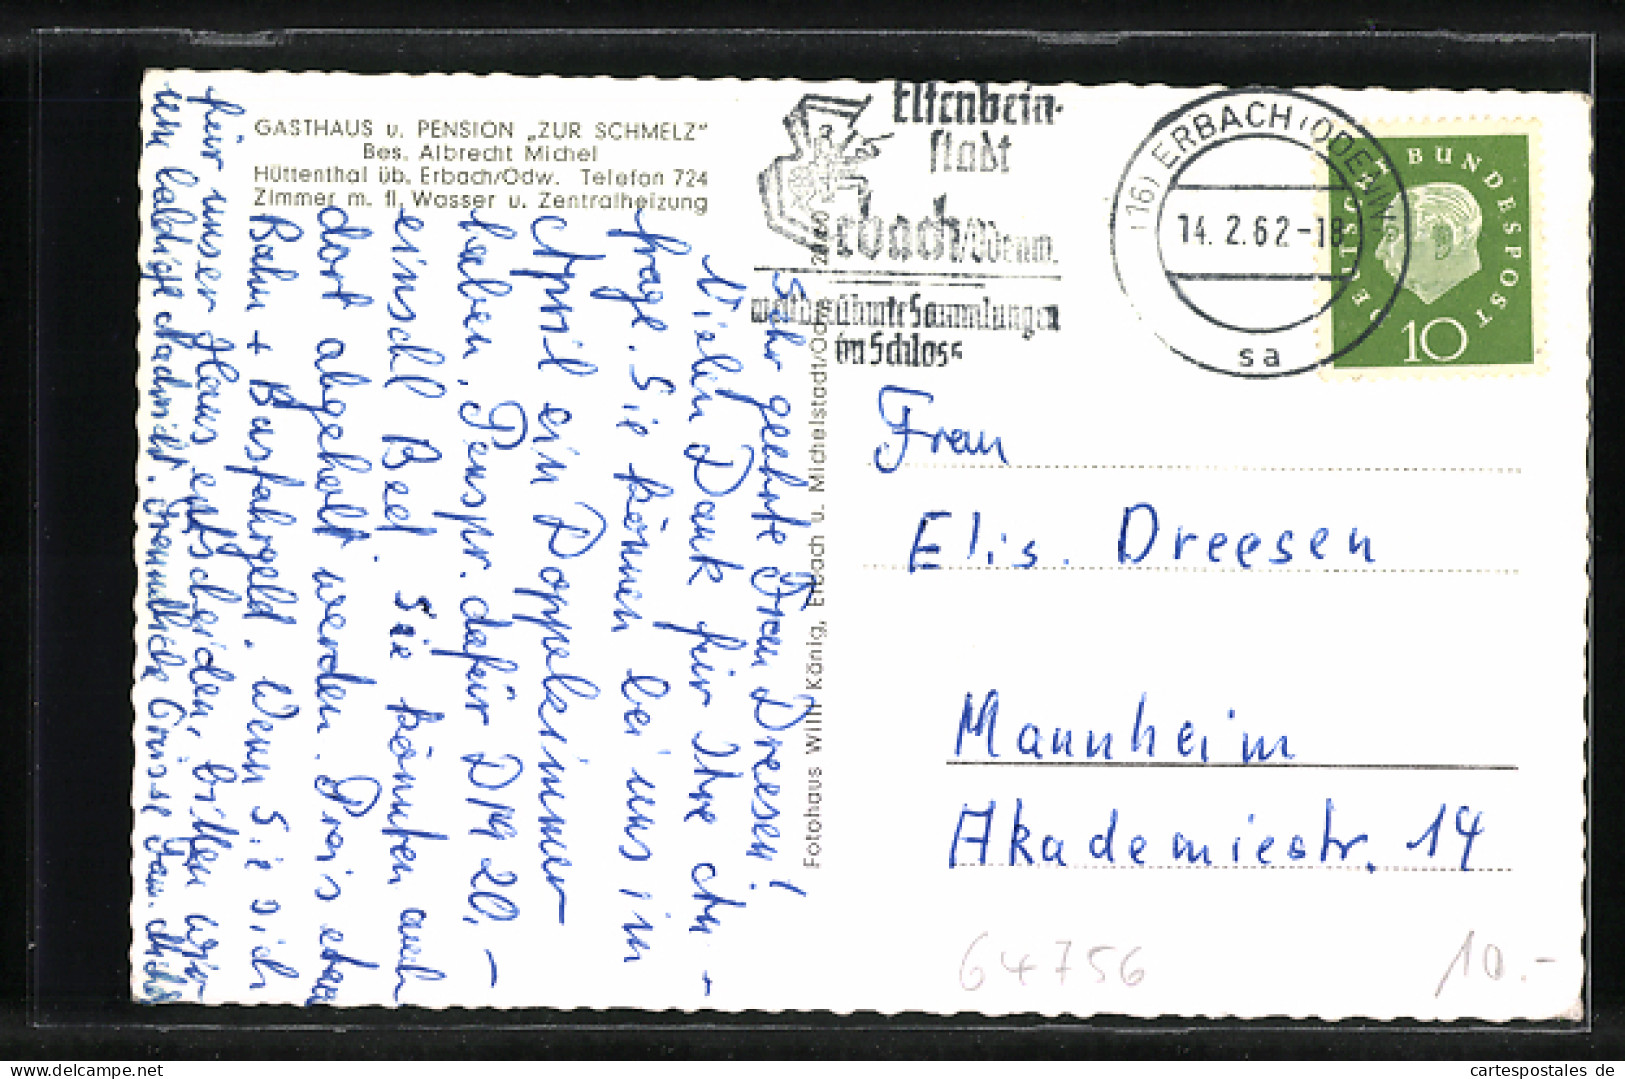 GASTHAUS u. PENSION „ZUR SCHMELZ"
Bes. Albrecht Michel
Hüttenthal üb. Erbach/Odw. Telefon 724
Zimmer m. fl. Wasser u. Zentralheizung
Sehr geehrte Frau Dreesen!
Vielen Dank für Ihre An-
frage. Sie können bei uns im
April ein Doppelzimmer
haben, Penspr. dafür DM 20,-
einschl Bed. Sie könnten auch
dort abgeholt werden. Preis etwa
Bahn + Busfahrgeld. Wenn Sie sich
für unser Haus entscheiden, bitten wir
um baldige Nachricht. Freundliche Grüsse Fam. Michel
Fotohaus Willi König, Erbach u. Michelstadt/Odw.
Elfenbein-
stadt
Erbach/Odenw.
weltberühmte Sammlungen
im Schloss
(16) ERBACH (ODENW)
14. 2. 62 - 18
sa
DEUTSCHE BUNDESPOST
10
Frau
Elis. Dreesen
Mannheim
Akademiestr. 14
64756
10.-
www.cartespostales.de